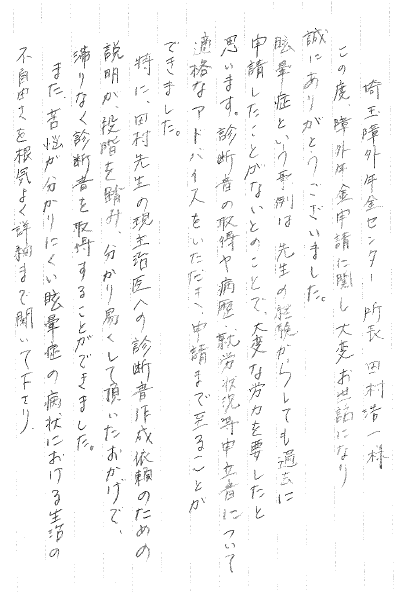 埼玉障外年金センター 所長 田村浩一様
この度、障外年金申請に関し大変お世話になり
誠にありがとうございました。
眩暈症という事例は、先生の経験からしても過去に
申請したことがないとのことで、大変な労力を要したと
思います。診断書の取得や病歴・就労状況等申立書について
適格なアドバイスをいただき、申請まで至ることが
できました。
特に、田村先生の現主治医への診断書作成依頼のための
説明が、段階を踏み、分かり易くして頂いたおかげで、
滞りなく診断書を取得することができました。
また、苦悩が分かりにくい眩暈症の病状における生活の
不自由さを根気よく詳細まで聞いて下さり、